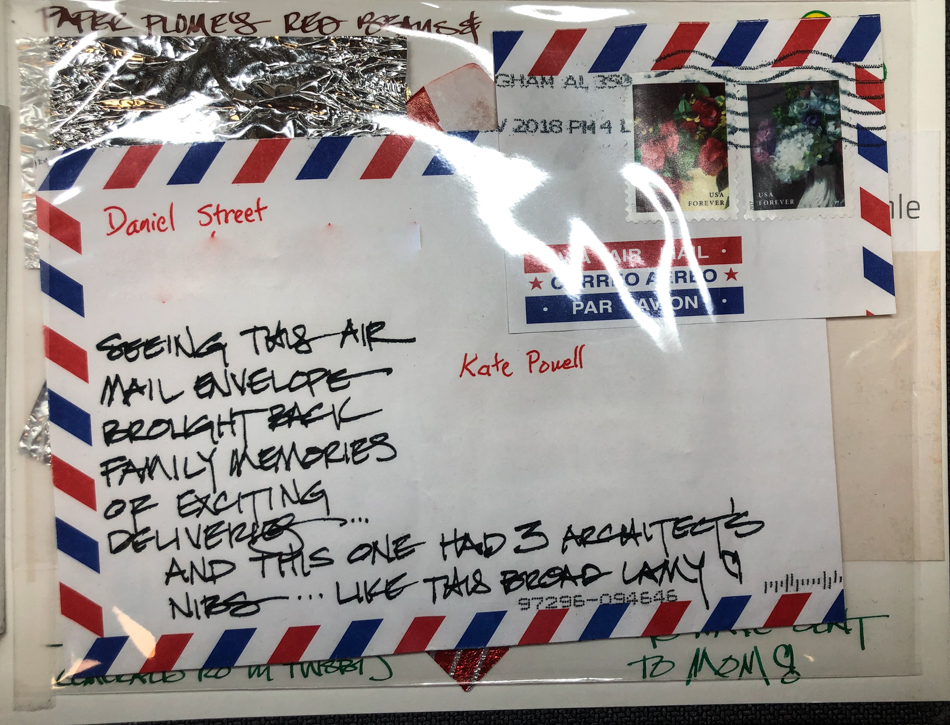 PAPER PLUME'S RED BEANS &
GHAM AL 350
V 2018 PM 4 L
USA
FOREVER
USA
FOREVER
AIR MAIL
CORREO AEREO
PAR AVION
Daniel Street
Kate Powell
SEEING THIS AIR
MAIL ENVELOPE
BROUGHT BACK
FAMILY MEMORIES
OF EXCITING
DELIVERIES...
AND THIS ONE HAD 3 ARCHITECT'S
NIBS... LIKE THIS BROAD LAMY
97296-094646
TO MOM